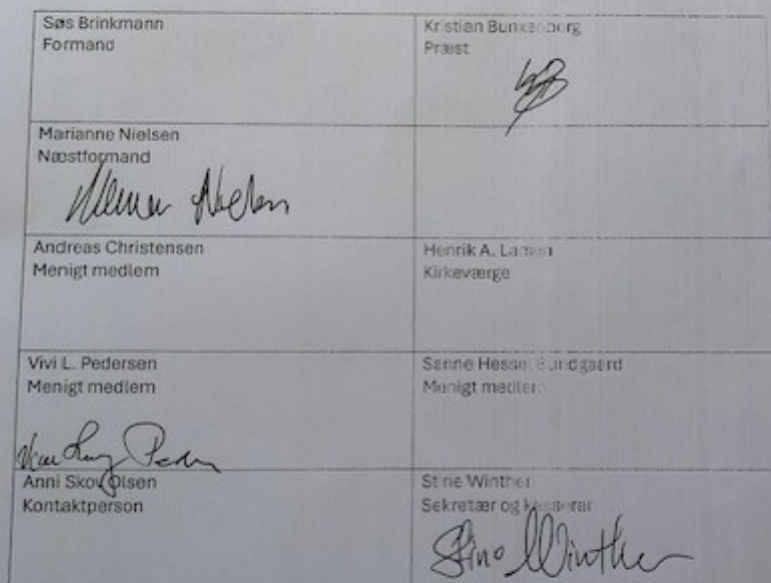 Søs Brinkmann
Formand
Kristian Bunkenborg
Præst
Marianne Nielsen
Næstformand
Nielsen
Andreas Christensen
Menigt medlem
Henrik A. Larsen
Kirkeværge
Vivi L. Pedersen
Menigt medlem
Sanne Hessel Bundgaard
Menigt medlem
Anni Skov Olsen
Kontaktperson
Stine Winther
Sekretær og kasserer
Stine Winther